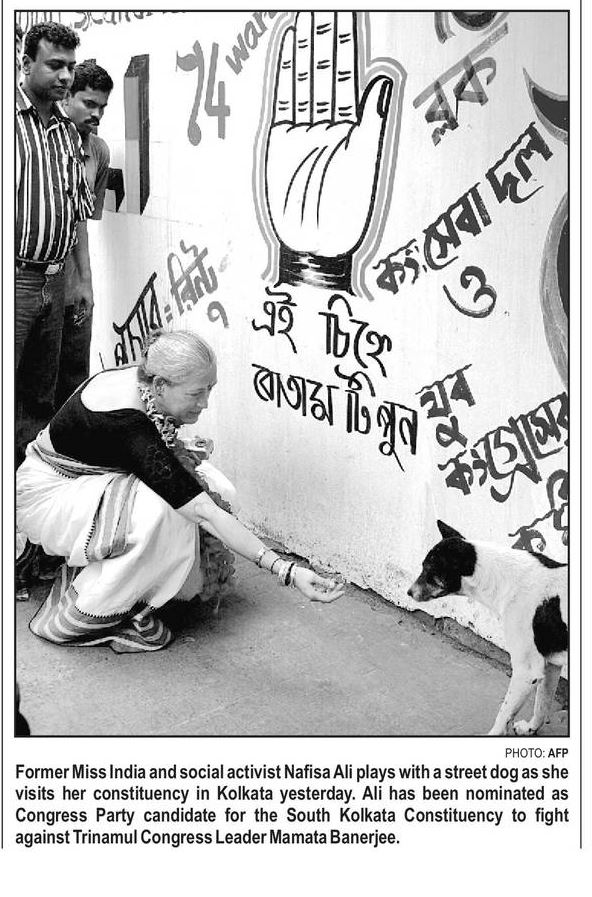 74 ward
ব্লক
কং সেবা দল
ও
এই চিহ্নে
বোতাম টিপুন
যুব
কংগ্রেসের
প্রচার : রিন্টু
PHOTO: AFP
Former Miss India and social activist Nafisa Ali plays with a street dog as she
visits her constituency in Kolkata yesterday. Ali has been nominated as
Congress Party candidate for the South Kolkata Constituency to fight
against Trinamul Congress Leader Mamata Banerjee.